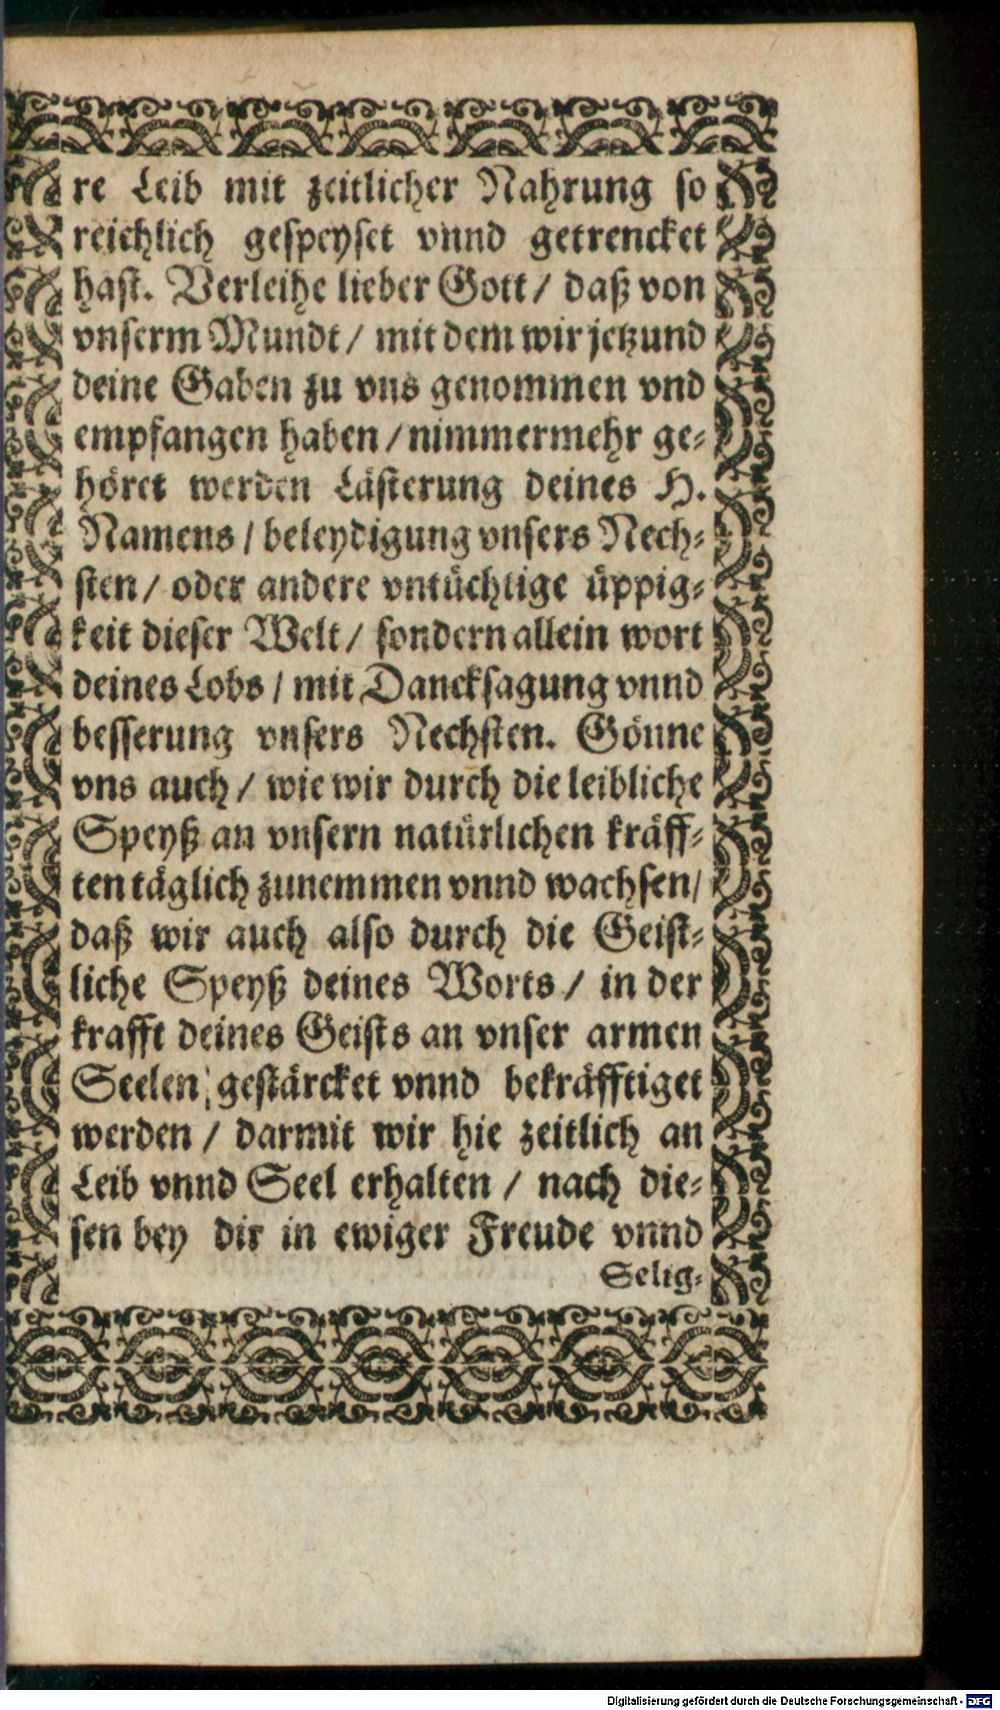 re Leib mit zeitlicher Nahrung so
reichlich gespeyset vnnd getrencket
hast. Verleihe lieber Gott / daß von
vnserm Mundt / mit dem wir jetzund
deine Gaben zu vns genommen vnd
empfangen haben / nimmermehr ge⸗
höret werden Lästerung deines H.
Namens / beleydigung vnsers Nech⸗
sten / oder andere vntüchtige üppig⸗
keit dieser Welt / sondern allein wort
deines Lobs / mit Dancksagung vnnd
besserung vnsers Nechsten. Gönne
vns auch / wie wir durch die leibliche
Speyß an vnsern natürlichen kräff⸗
ten täglich zunemmen vnnd wachsen /
daß wir auch also durch die Geist⸗
liche Speyß deines Worts / in der
krafft deines Geists an vnser armen
Seelen / gestärcket vnnd bekräfftiget
werden / darmit wir hie zeitlich an
Leib vnnd Seel erhalten / nach die⸗
sen bey dir in ewiger Freude vnnd
Selig⸗
Digitalisierung gefördert durch die Deutsche Forschungsgemeinschaft - DFG